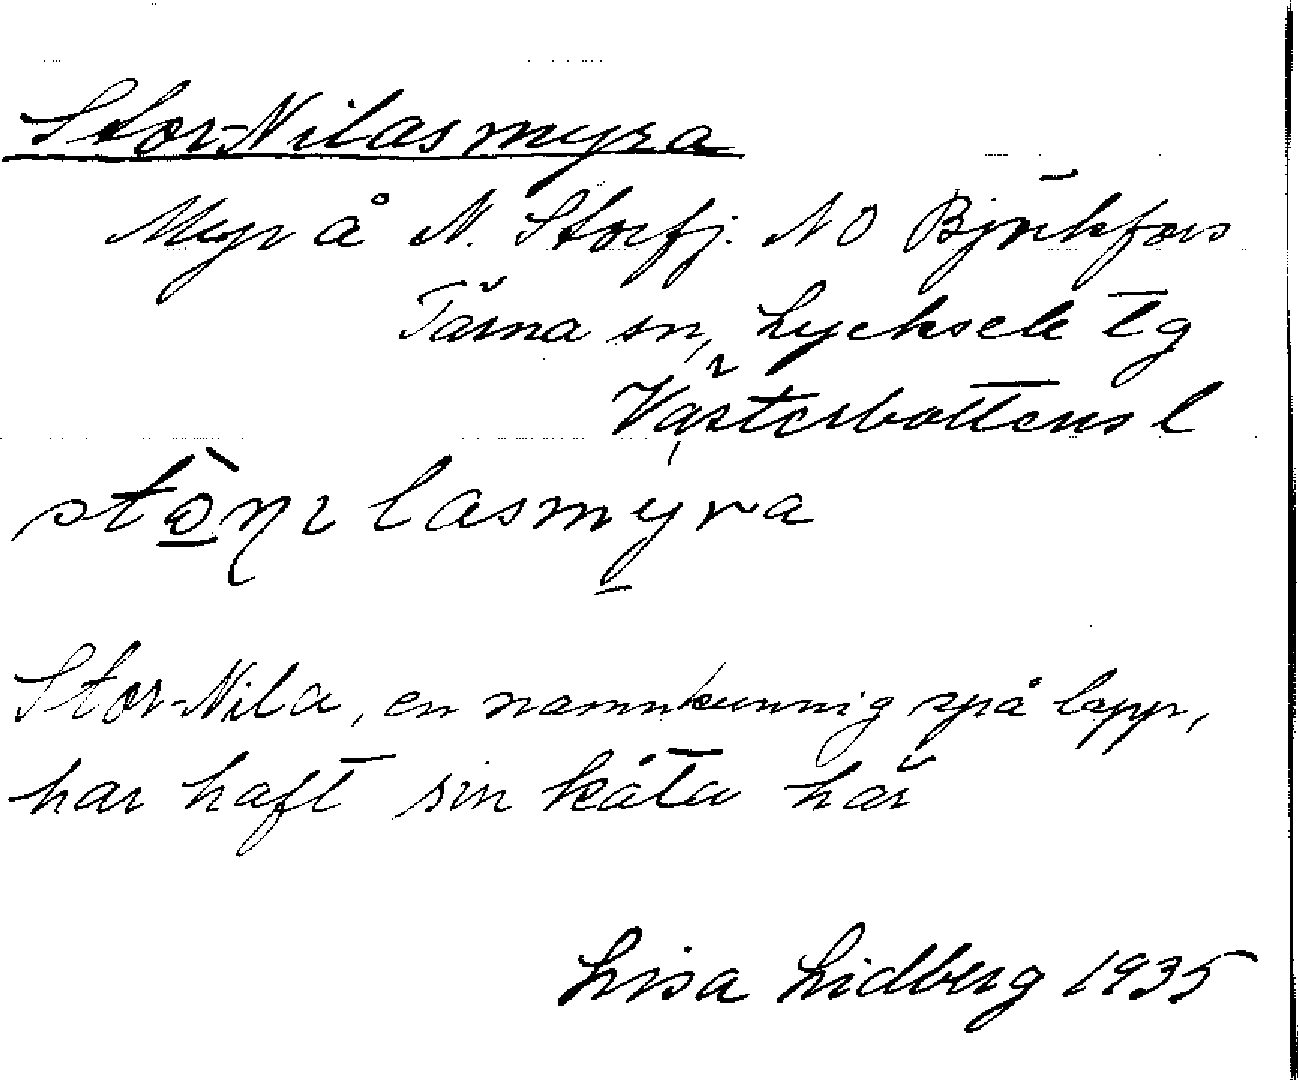 Stor-Nilasmyra
Myr å N. Storfj. NO Björkfors
Tärna sn, Lycksele tg
Västerbottens l
Stor-Nila, en namnkunnig spå lapp,
har haft sin kåta här
Lisa Lidberg 1935